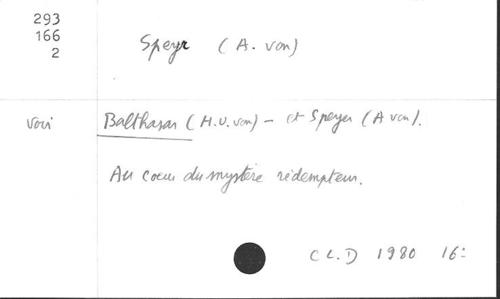 293
166
2
Speyr (A. von)
voir Balthasar (H.U. von) - et Speyer (A von).
Au coeur du mystère rédempteur.
C L.D 1980 16=